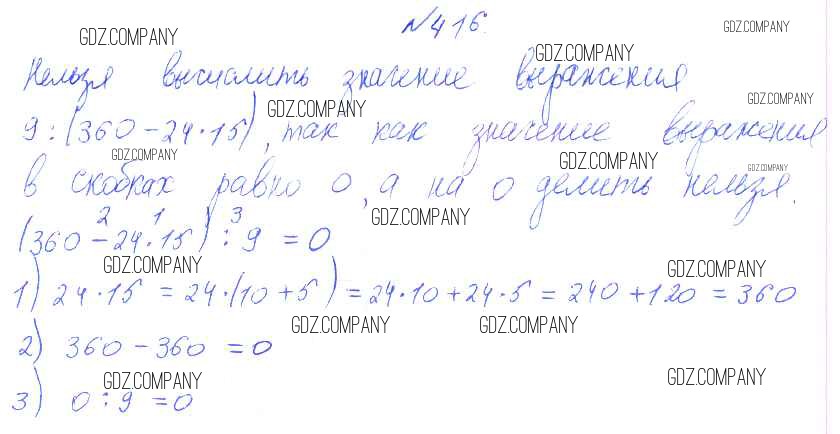 №416.
GDZ.COMPANY
GDZ.COMPANY
GDZ.COMPANY
Нельзя вычислить значение выражения
GDZ.COMPANY
GDZ.COMPANY
9:(360-24·15), так как значение выражения
GDZ.COMPANY
GDZ.COMPANY
GDZ.COMPANY
в скобках равно 0, а на 0 делить нельзя.
GDZ.COMPANY
2 1 3
(360-24·15):9=0
GDZ.COMPANY
GDZ.COMPANY
1) 24·15=24·(10+5)=24·10+24·5=240+120=360
GDZ.COMPANY
GDZ.COMPANY
2) 360-360=0
GDZ.COMPANY
GDZ.COMPANY
3) 0:9=0